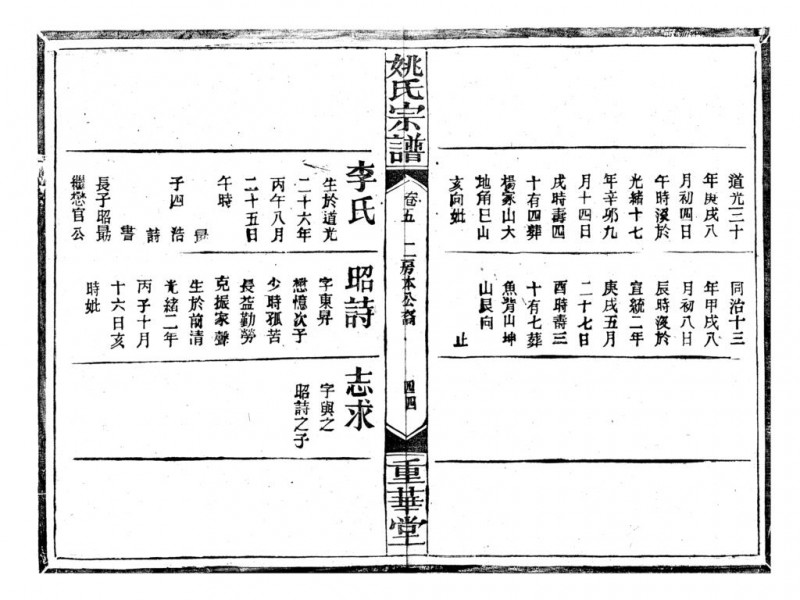 道光三十
年庚戌八
月初四日
午時歿於
光緒十七
年辛卯九
月十四日
戌時壽四
十有四葬
楊家山大
地角巳山
亥向妣
同治十三
年甲戌八
月初八日
辰時歿於
宣統二年
庚戌五月
二十七日
酉時壽三
十有七葬
魚背山坤
山艮向
止
姚氏宗譜
卷五 二房本公裔 四四
重華堂
李氏
生於道光
二十六年
丙午八月
二十五日
午時
勗
子四 浩
詩
書
長子昭勗
繼懋官公
昭詩
字東昇
懋憶次子
少時孤苦
長益勤勞
克振家聲
生於前清
光緒二年
丙子十月
十六日亥
時妣
志求
字與之
昭詩之子